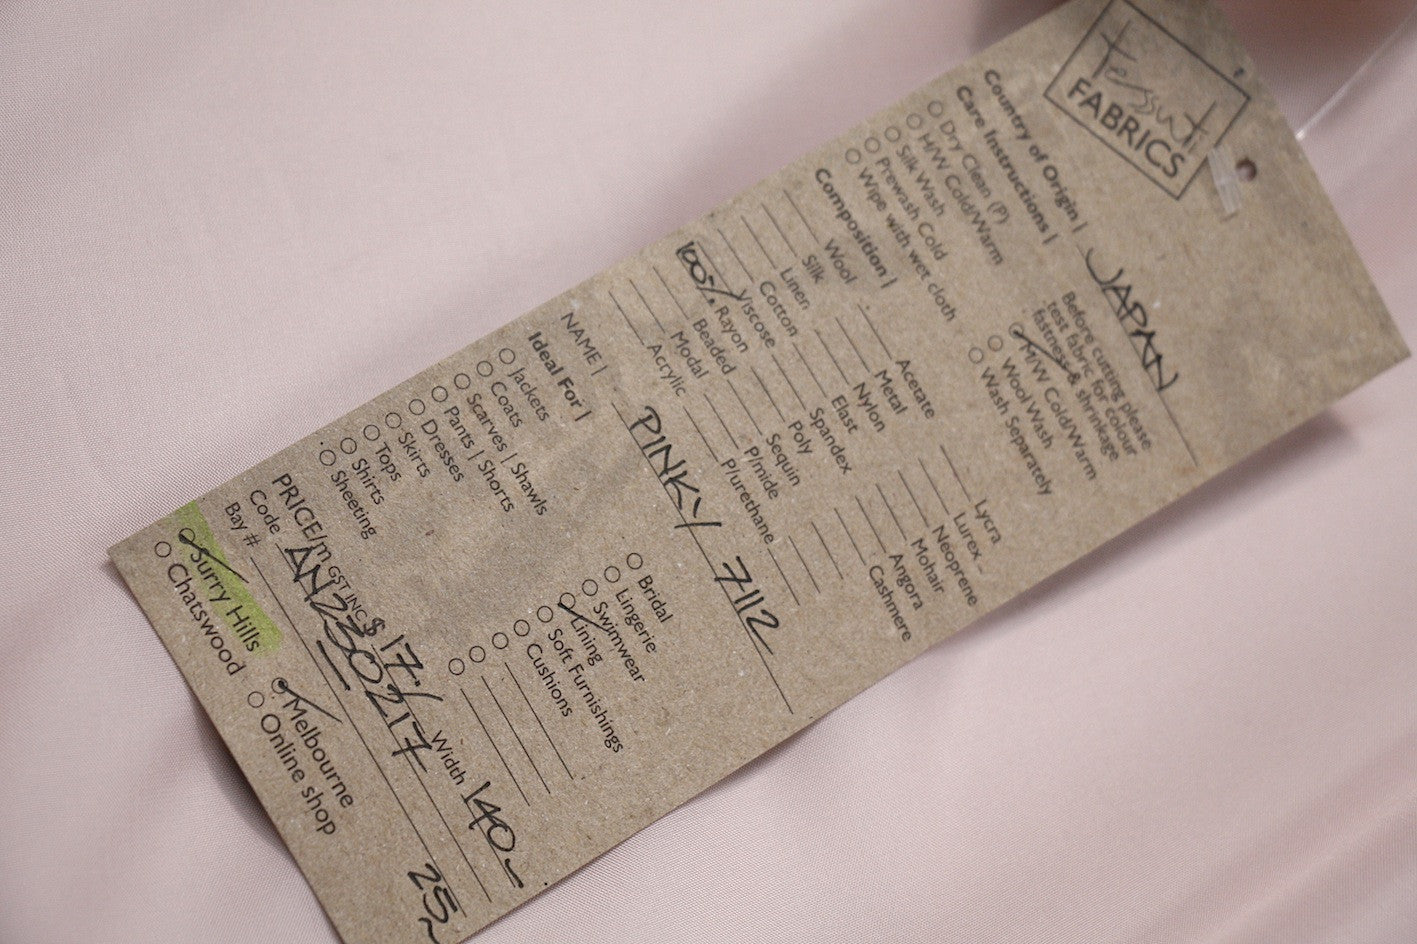 tessuti
FABRICS
Country of Origin | JAPAN
Care Instructions |
Dry Clean (P)
H/W Cold/Warm
Silk Wash
Prewash Cold
Wipe with wet cloth
Before cutting please
test fabric for colour
fastness & shrinkage
H/W Cold/Warm
Wool Wash
Wash Separately
Composition |
Wool
Silk
Linen
Cotton
Viscose
100% Rayon
Beaded
Modal
Acrylic
Acetate
Metal
Nylon
Elast
Spandex
Poly
Sequin
P/mide
P/urethane
Lycra
Lurex
Neoprene
Mohair
Angora
Cashmere
NAME | PINKY 7112
Ideal For |
Jackets
Coats
Scarves | Shawls
Pants | Shorts
Dresses
Skirts
Tops
Shirts
Sheeting
Bridal
Lingerie
Swimwear
Lining
Soft Furnishings
Cushions
PRICE/m GST INC $ 17./ Width 140
Code AN230217
Bay # 25
Surry Hills
Chatswood
Melbourne
Online shop